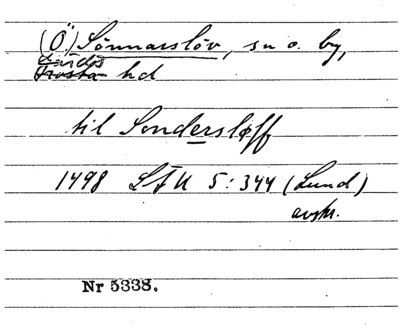 (Ö) Sönnarslöv, sn o. by,
Gärds
Trosta hd
til Sondersløff
1498 LÄU 5:344 (Lund)
avskr.
Nr 5338.